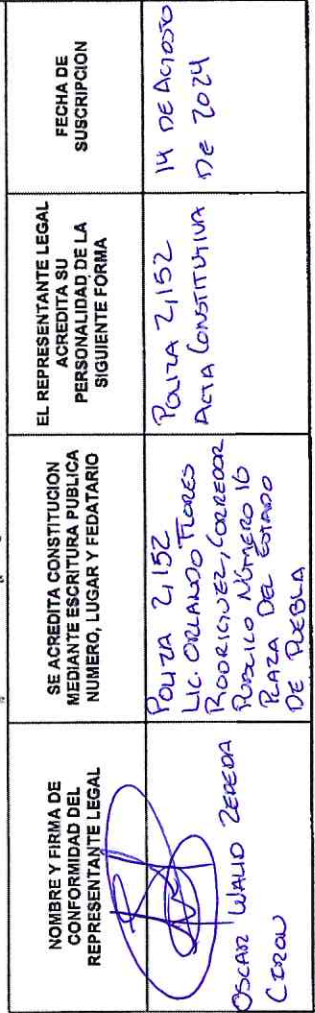 NOMBRE Y FIRMA DE
CONFORMIDAD DEL
REPRESENTANTE LEGAL
SE ACREDITA CONSTITUCION
MEDIANTE ESCRITURA PUBLICA
NUMERO, LUGAR Y FEDATARIO
EL REPRESENTANTE LEGAL
ACREDITA SU
PERSONALIDAD DE LA
SIGUIENTE FORMA
FECHA DE
SUSCRIPCION
OSCAR WALID ZEPEDA
CIRON
POLIZA 2,152
LIC. ORLANDO FLORES
RODRIGUEZ, CORREDOR
PUBLICO NÚMERO 16
PLAZA DEL ESTADO
DE PUEBLA
POLIZA 2,152
ACTA CONSTITUTIVA
14 DE AGOSTO
DE 2024